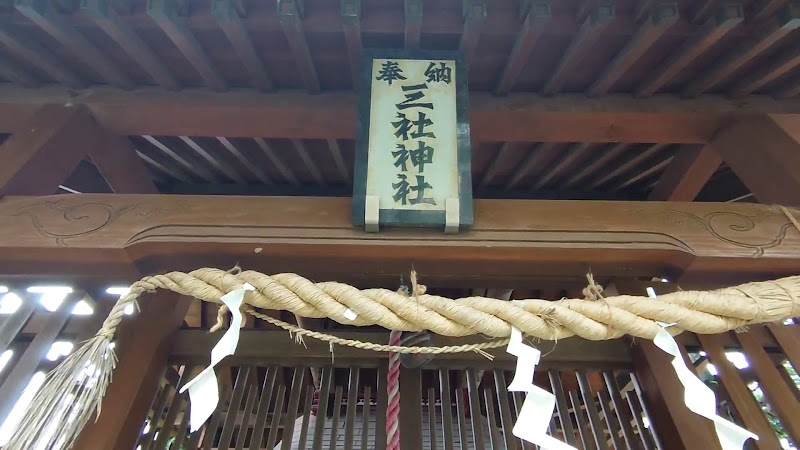 奉納
三社神社